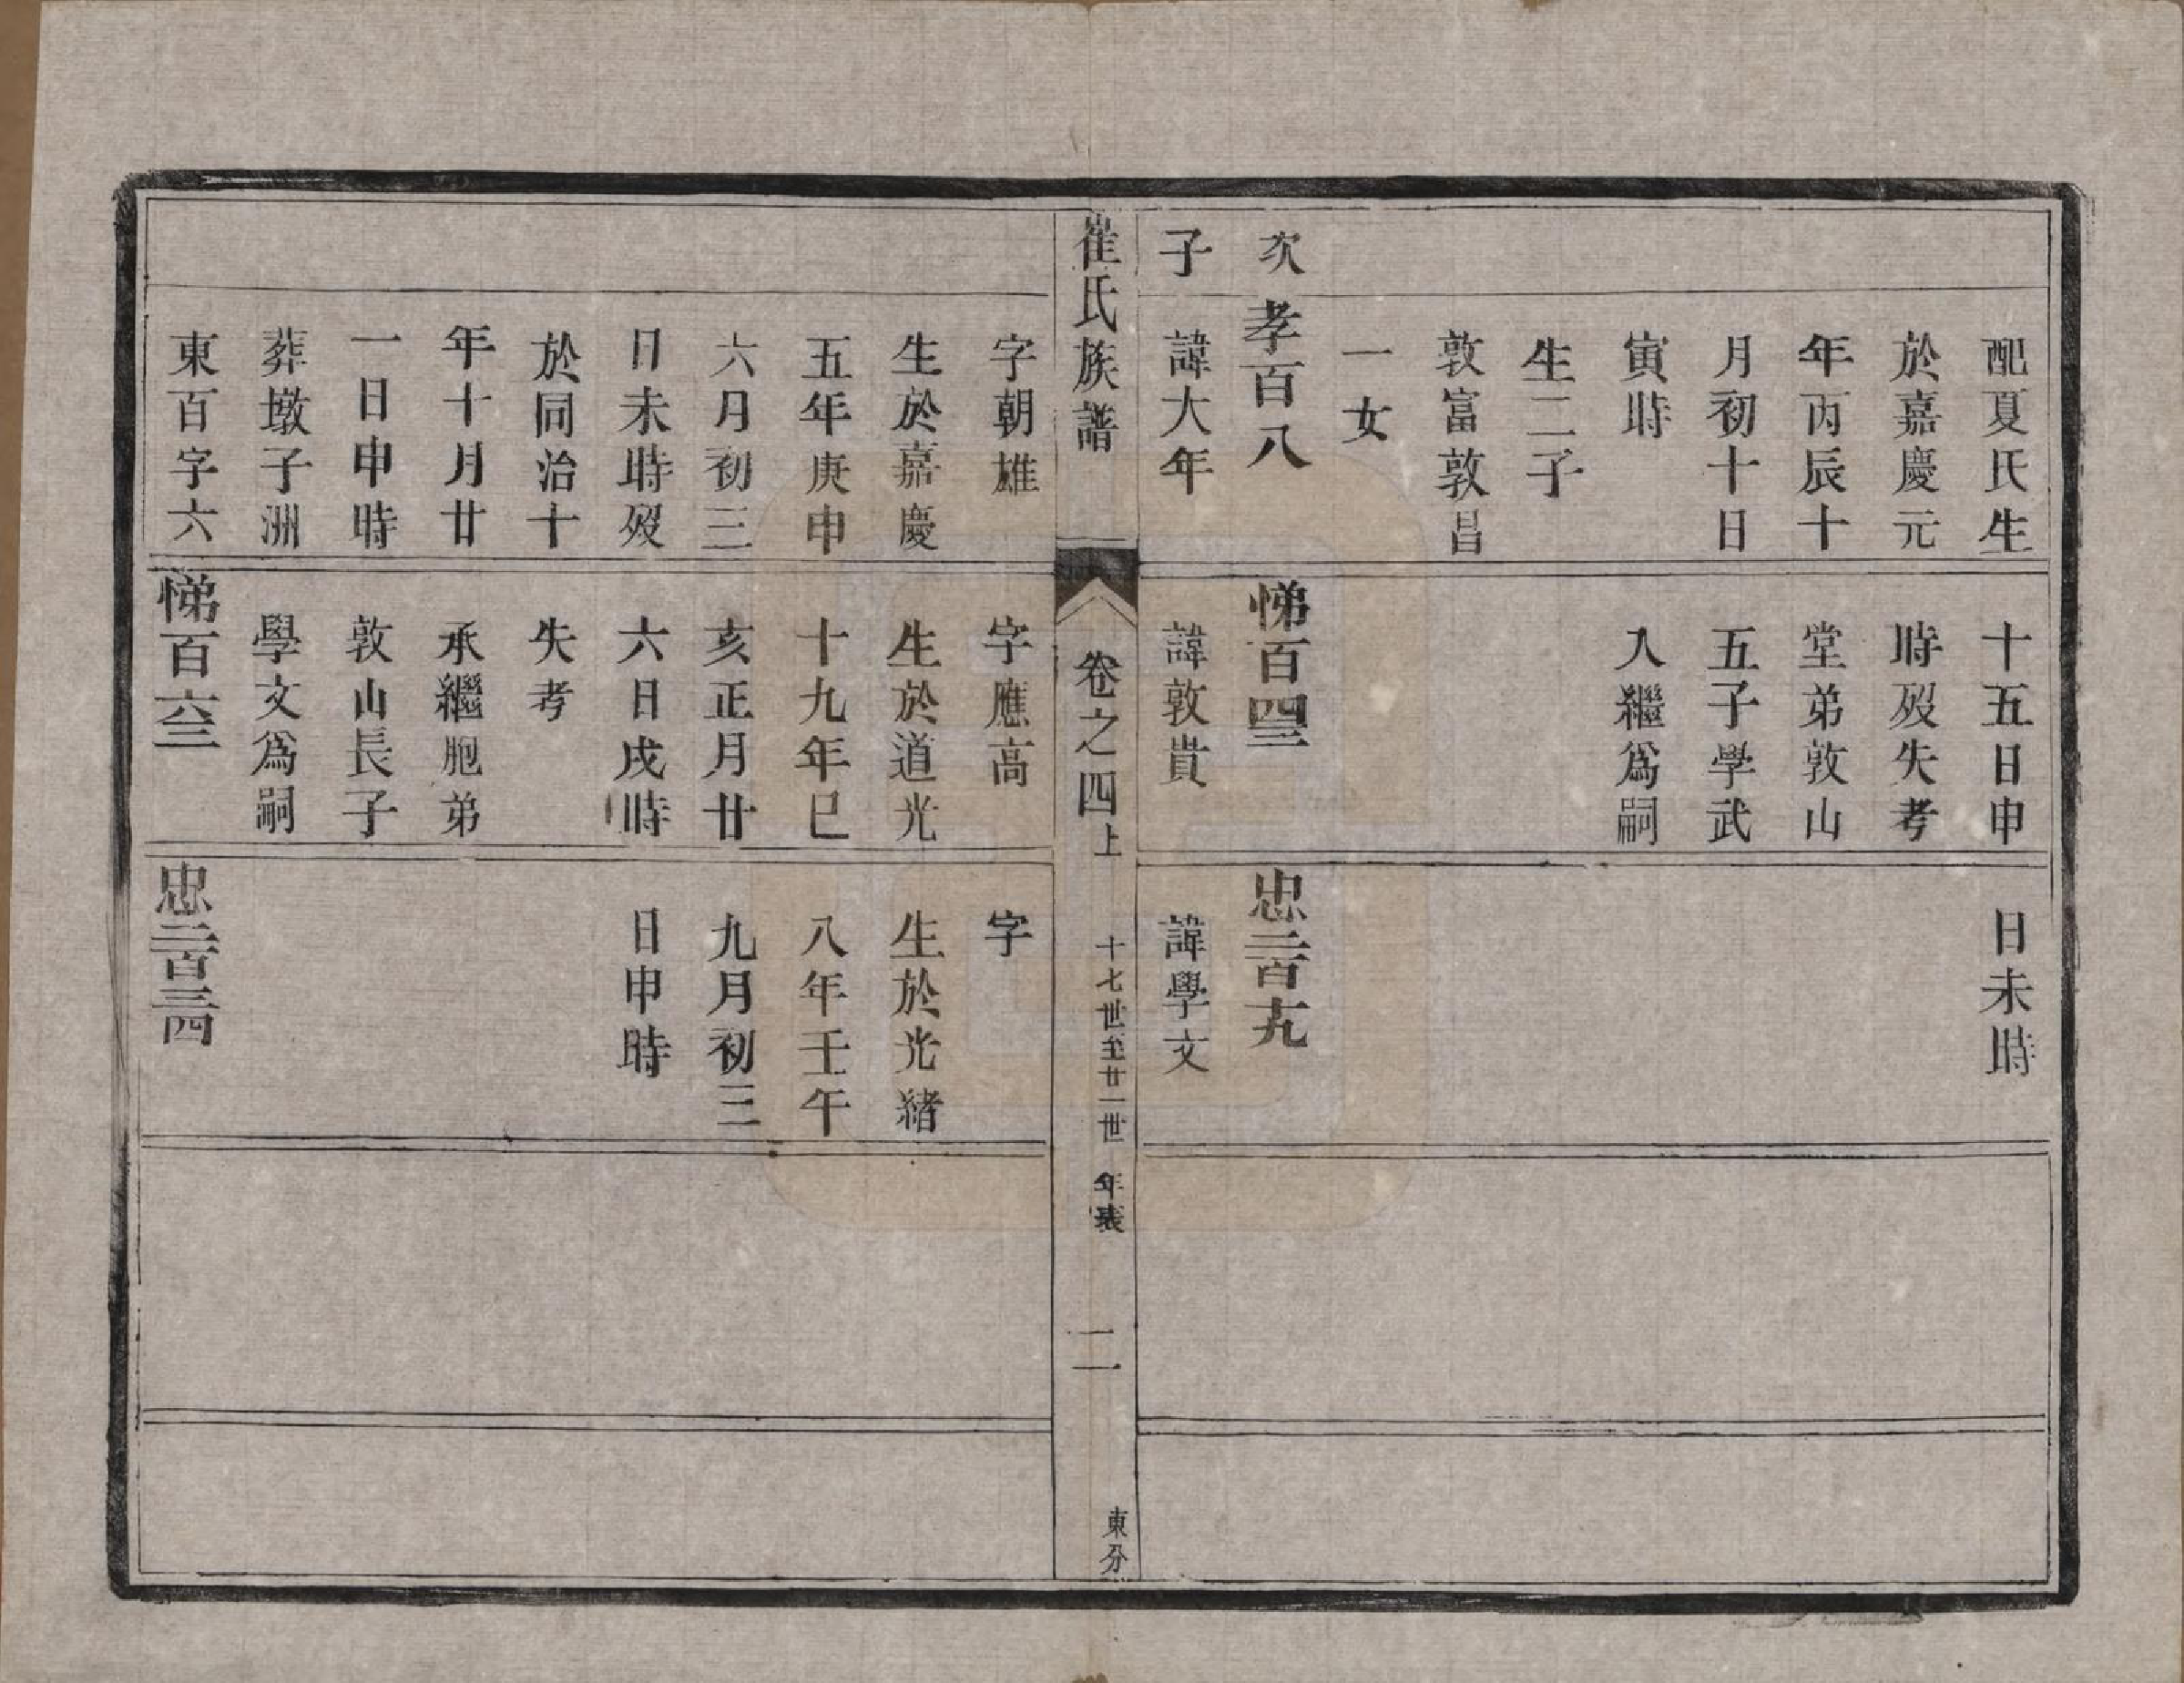 配夏氏生
於嘉慶元
年丙辰十
月初十日
寅時
生二子
敦富敦昌
一女
次
孝百八
子
諱大年
十五日申
時歿失考
堂弟敦山
五子學武
入繼爲嗣
悌百四三
諱敦貴
日未時
忠二百十九
諱學文
崔氏族譜
卷之四上
十七世至廿一世
年表
二
東分
字朝雄
生於嘉慶
五年庚申
六月初三
日未時歿
於同治十
年十月廿
一日申時
葬墩子洲
東百字六
字應高
生於道光
十九年巳
亥正月廿
六日戌時
失考
承繼胞弟
敦山長子
學文爲嗣
悌百六三
字
生於光緒
八年壬午
九月初三
日申時
忠二百三四